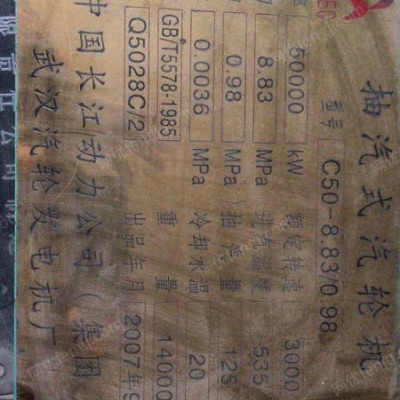 抽汽式汽轮机
型号 C50-8.83/0.98
50000 kW 额定转速 3000
8.83 MPa 进汽温度 535
0.98 MPa 抽汽量 125
0.0036 MPa 冷却水温 20
GB/T5578-1985 重量 14000
Q5028C/2 出品年月 2007年9
中国长江动力公司(集团
武汉汽轮发电机厂